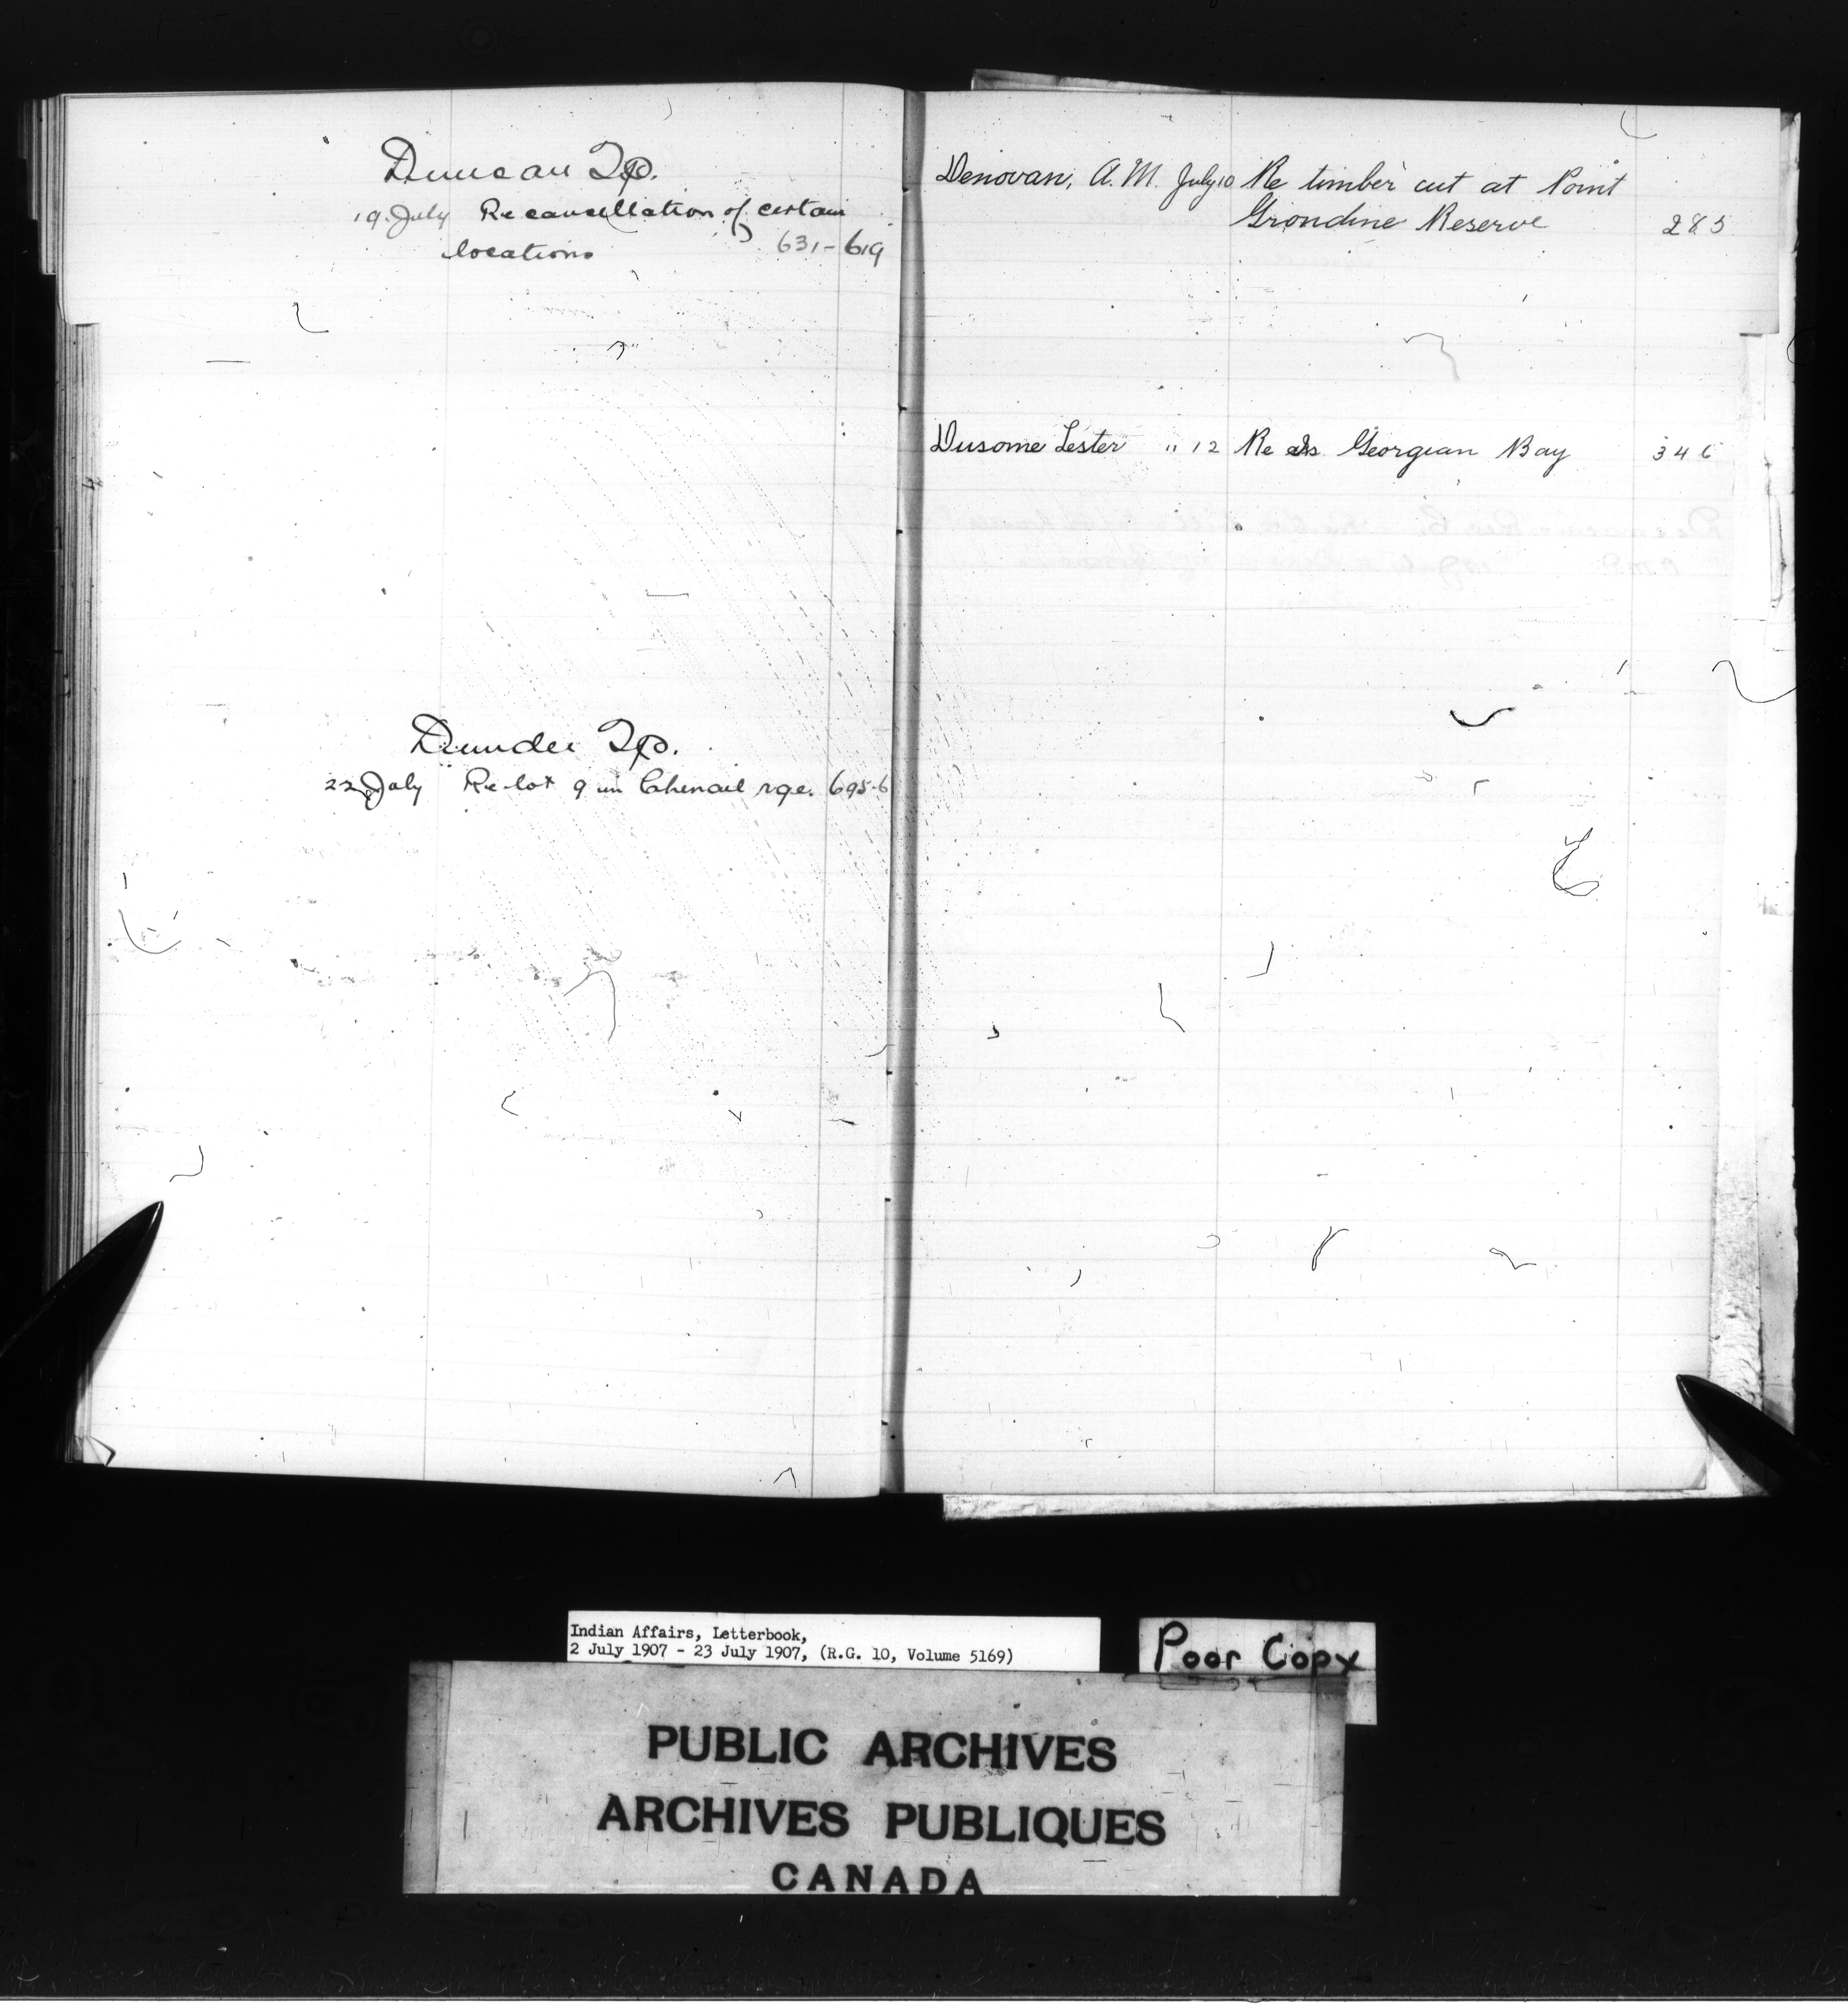 Duncan Tp.
19 July Re cancellation of certain
locations 631-619
Dundee Tp.
22 July Re lot 9 in Chenail rge. 695-6
Denovan, A. M. July 10 Re timber cut at Point
Grondine Reserve 285
Dusome Lester " 12 Re Georgian Bay 346
Indian Affairs, Letterbook,
2 July 1907 - 23 July 1907, (R.G. 10, Volume 5169)
Poor Copy
PUBLIC ARCHIVES
ARCHIVES PUBLIQUES
CANADA